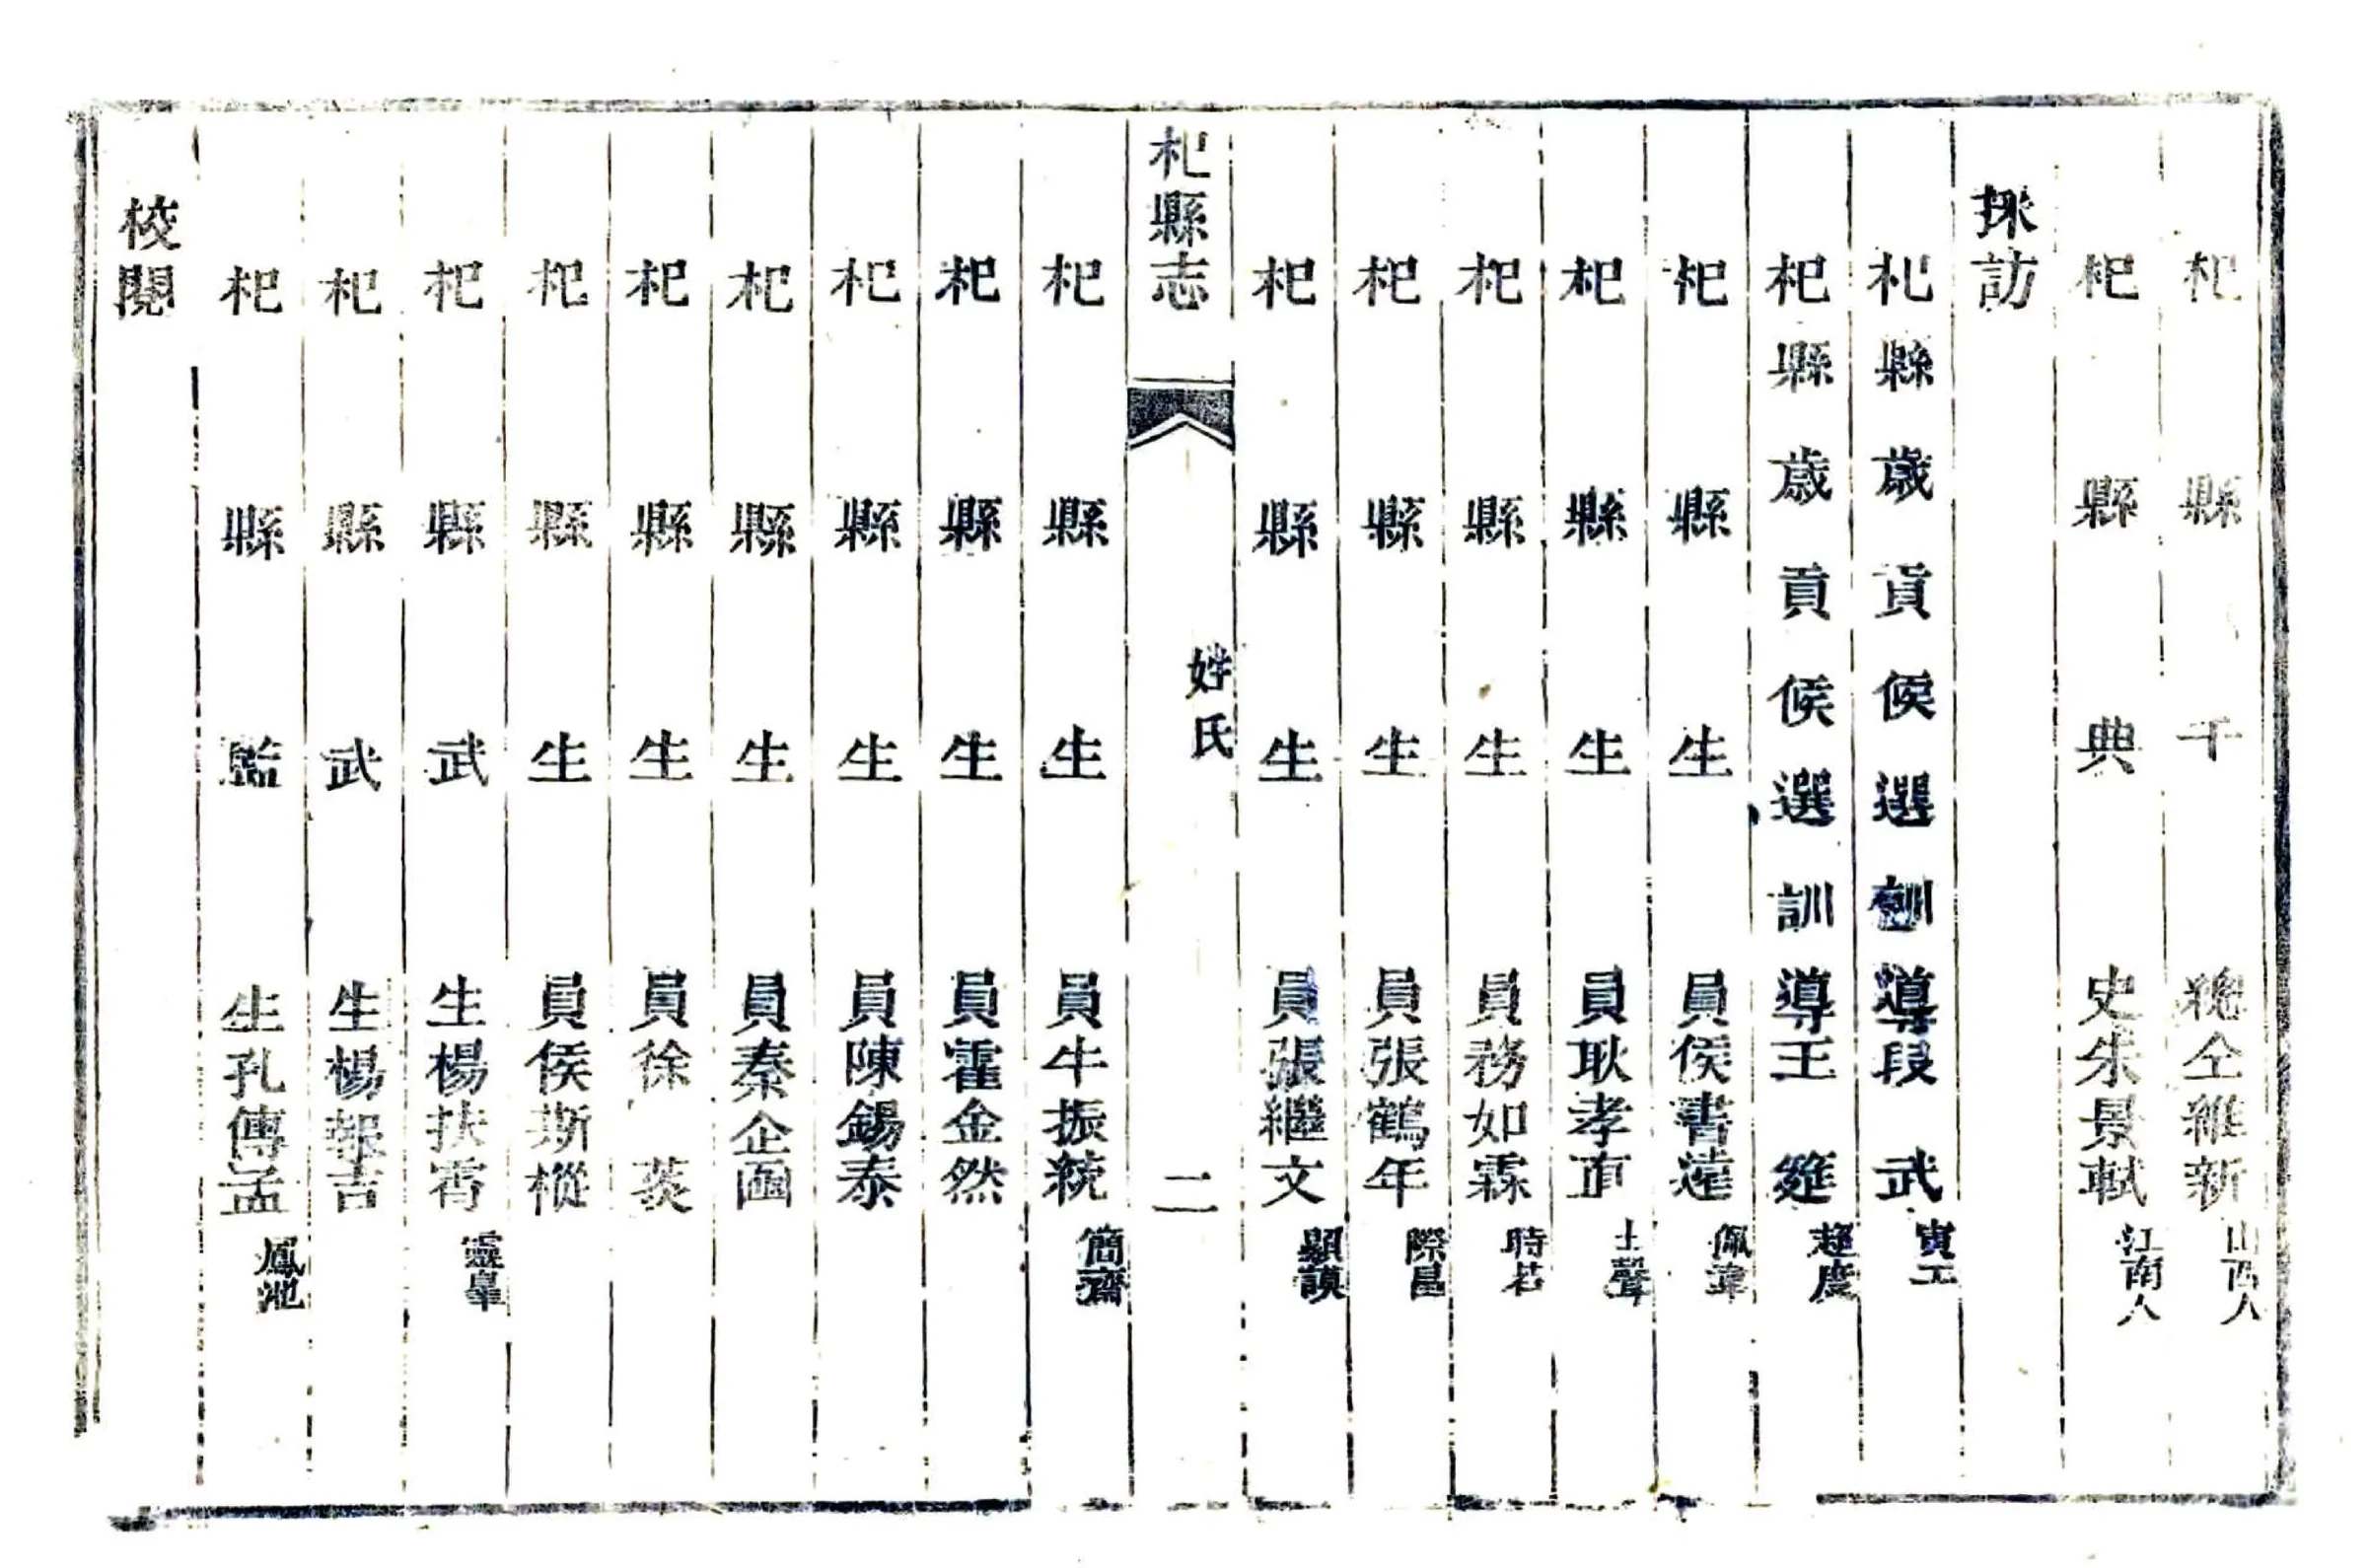 杞縣千總仝維新山西人
杞縣典史朱景軾江南人
採訪
杞縣歲貢候選訓導段武寅工
杞縣歲貢候選訓導王筵趕度
杞縣生員侯書遠佩瑋
杞縣生員耿孝直士聲
杞縣生員務如霖時若
杞縣生員張鶴年際昌
杞縣生員張繼文顯謨
杞縣志
姓氏
二
杞縣生員牛振統簡齋
杞縣生員霍金然
杞縣生員陳錫泰
杞縣生員秦企函
杞縣生員徐葵
杞縣生員侯斯樅
杞縣武生楊扶霄靈皐
杞縣武生楊報吉
杞縣監生孔傳孟鳳池
校閱